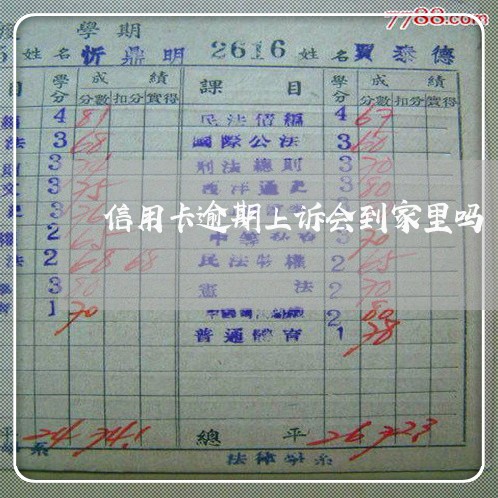 7788.com
學期
姓名 忻鼎明 2616 姓名 賈泰德
目 學分 成績 課目 學分 成績
分數 扣分 實得 分數 扣分 實得
4 81 民法債編 4 67
法 3 68 國際公法 3 60
3 刑法總則 3 70
3 75 西洋通史 3 80
3
信用卡逾期上诉会到家里吗
2 65 3 70
法 2 68 68 民法物權 2 65
3 80 憲法 2 70
1 70 2 80
普通體育 1 78
平 24 74.1 總平 26 72.3
系 法律學系